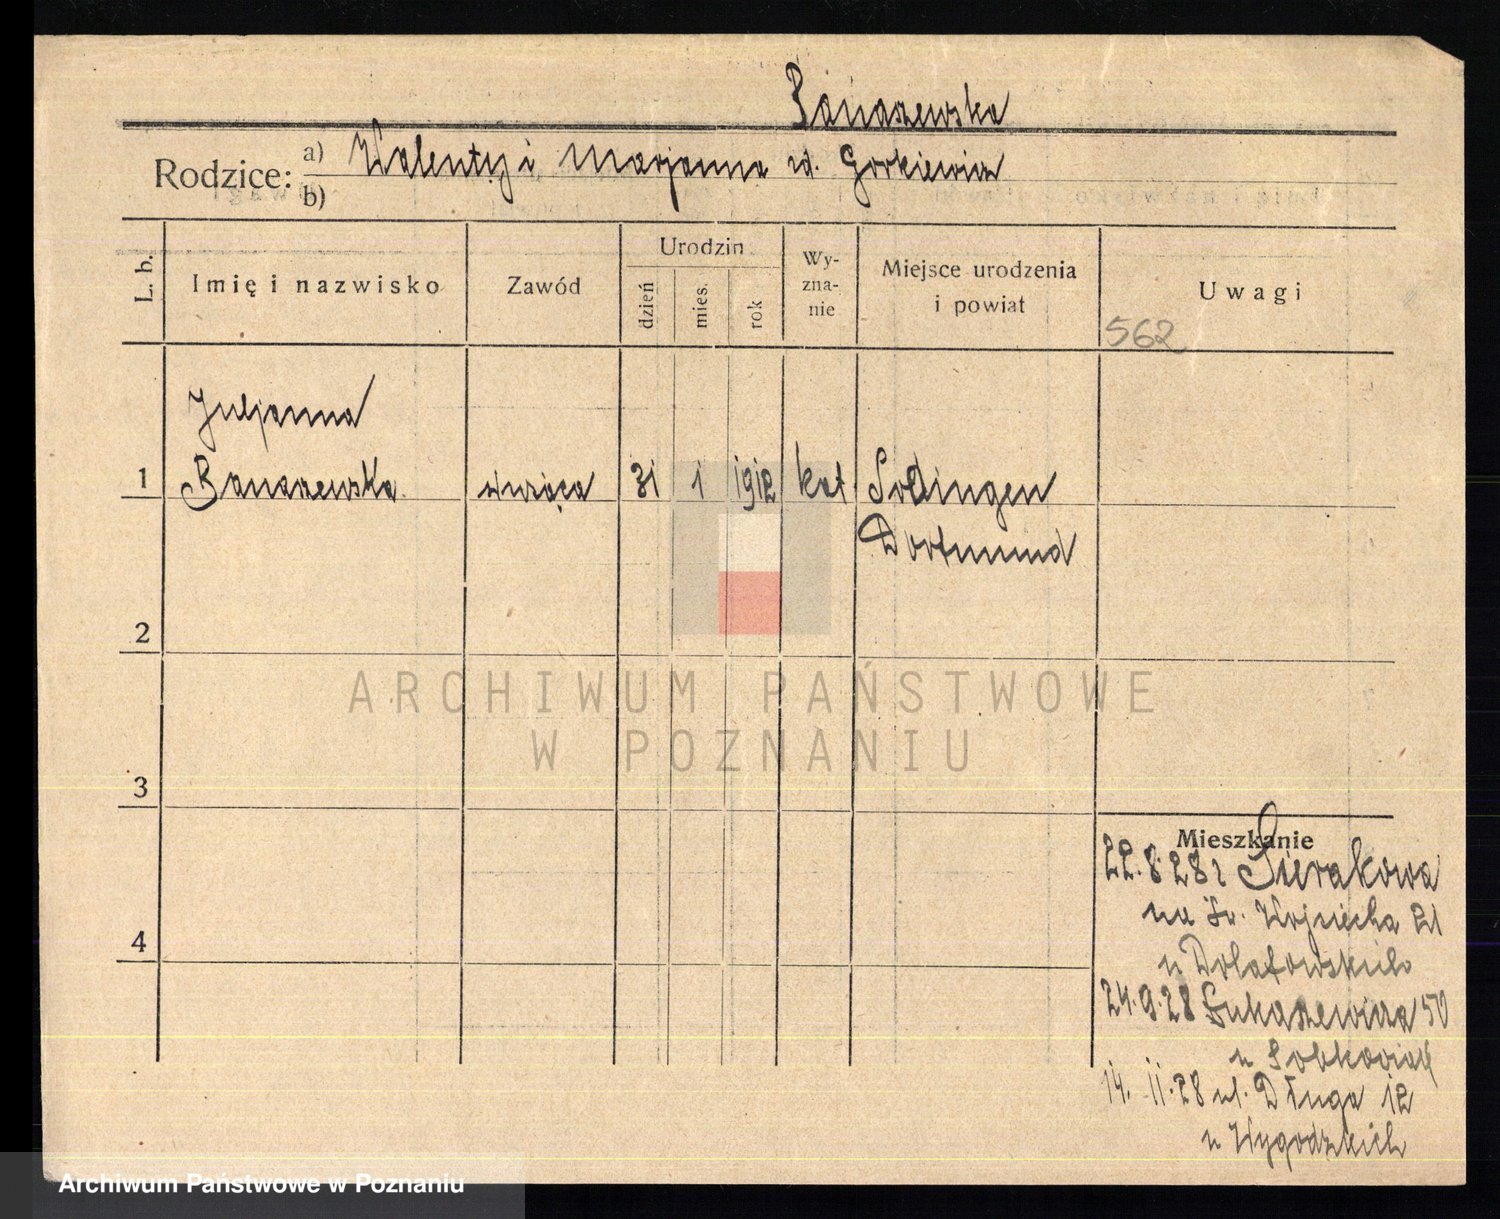 Banaszewska
Rodzice: a) Walenty i Marjanna zd. Gorkiewicz
b)
L. b. Imię i nazwisko Zawód Urodzin dzień mies. rok Wy-zna-nie Miejsce urodzenia i powiat Uwagi
562
Juljanna
1 Banaszewska służąca 31 1 1912 kat Sodingen
Dortmund
2
ARCHIWUM PAŃSTWOWE
W POZNANIU
3
Mieszkanie
22.8.28 z Sierakowa
na Św. Wojciecha 21
u
24.9.28 Łukaszewicza 50
u
14. 11.28 ul. Długa 12
u Wygodzkich
Archiwum Państwowe w Poznaniu
4